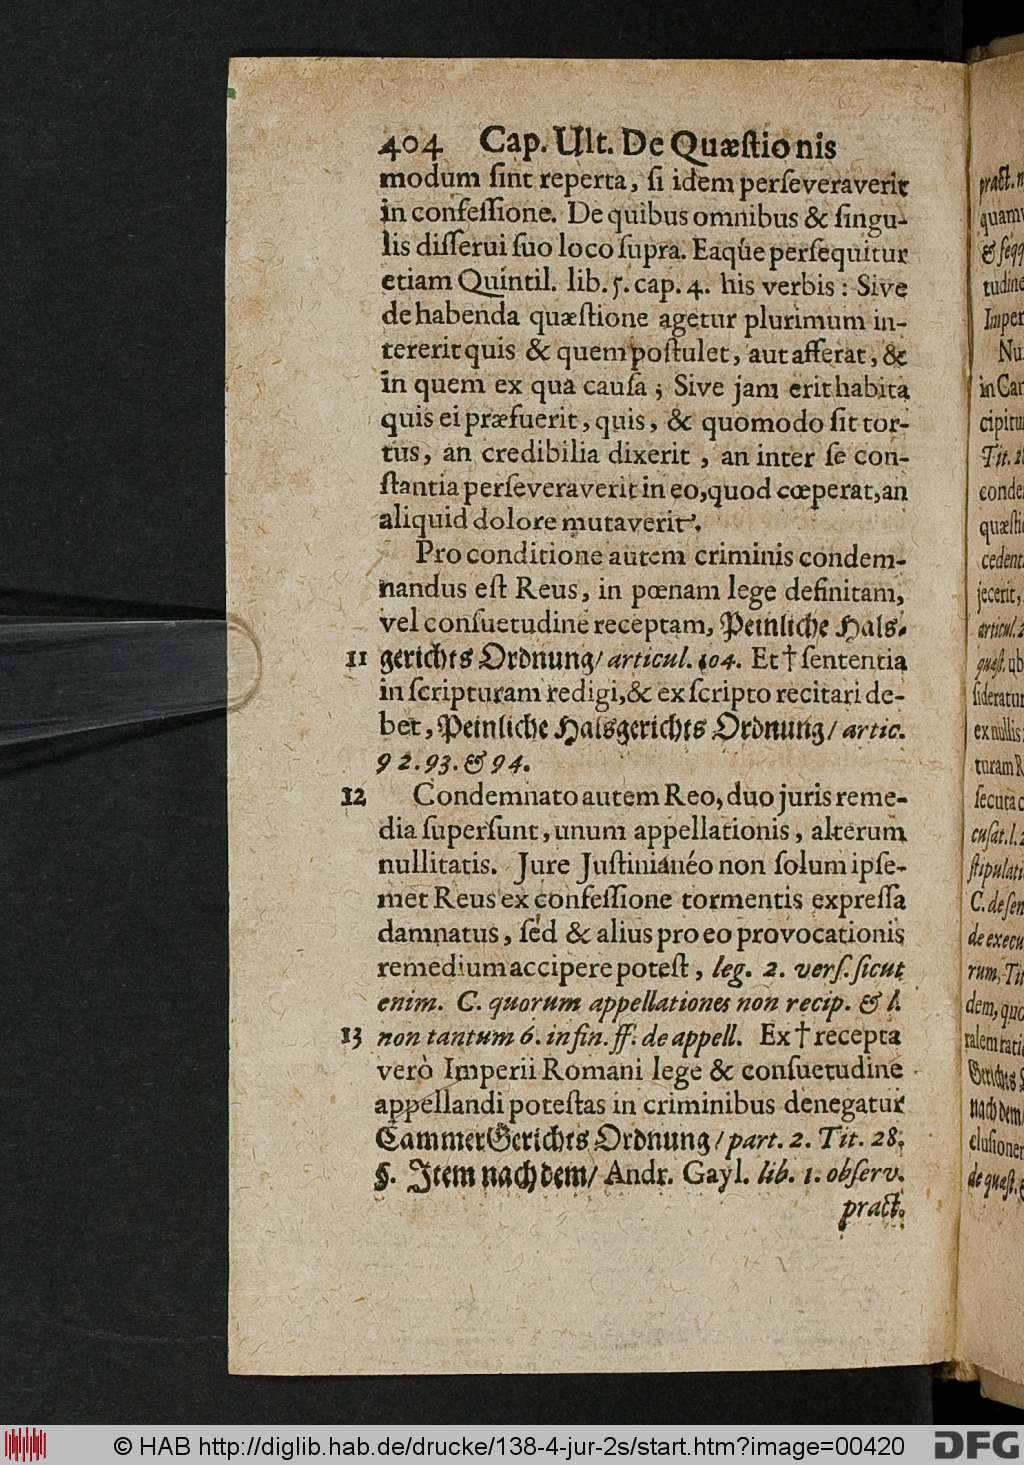 404 Cap. Ult. De Quæſtionis
modum ſint reperta, ſi idem perſeveraverit
in confeſſione. De quibus omnibus & ſingu-
lis diſſerui ſuo loco ſupra. Eaq́ue perſequitur
etiam Quintil. lib. 5. cap. 4. his verbis : Sive
de habenda quæſtione agetur plurimum in-
tererit quis & quem poſtulet, aut afferat, &
in quem ex qua cauſa ; Sive jam erit habita
quis ei præfuerit, quis, & quomodo ſit tor-
tus, an credibilia dixerit , an inter ſe con-
ſtantia perſeveraverit in eo, quod cœperat, an
aliquid dolore mutaverit.
Pro conditione autem criminis condem-
nandus eſt Reus, in pœnam lege definitam,
vel conſuetudine receptam, Peinliche Hals-
11 gerichts Ordnung/ articul. 104. Et † ſententia
in ſcripturam redigi, & ex ſcripto recitari de-
bet, Peinliche Halsgerichts Ordnung/ artic.
92. 93. & 94.
12 Condemnato autem Reo, duo juris reme-
dia ſuperſunt, unum appellationis, alterum
nullitatis. Jure Juſtinianéo non ſolum ipſe-
met Reus ex confeſſione tormentis expreſſa
damnatus, ſed & alius pro eo provocationis
remedium accipere poteſt, leg. 2. verſ. ſicut
enim. C. quorum appellationes non recip. & l.
13 non tantum 6. in fin. ff. de appell. Ex † recepta
verò Imperii Romani lege & conſuetudine
appellandi poteſtas in criminibus denegatur
CammerGerichts Ordnung/ part. 2. Tit. 28.
§. Item nach dem/ Andr. Gayl. lib. 1. obſerv.
pract.
pract. n
quamv
& ſeqq
tudine
Imper
Nu
in Car
cipitu
Tit. 2
conde
quæſti
cedent
jecerit,
articul. 2
quæſt. ub
ſideratur
ex nullis
turam R
ſecuta c
cuſat. l. 2
ſtipulati
C. de ſen
de execu
rum, Tit
dem, quo
ralem rati
Gerichts
nach dem/
cluſionem
de quæſt.
© HAB http://diglib.hab.de/drucke/138-4-jur-2s/start.htm?image=00420
DFG